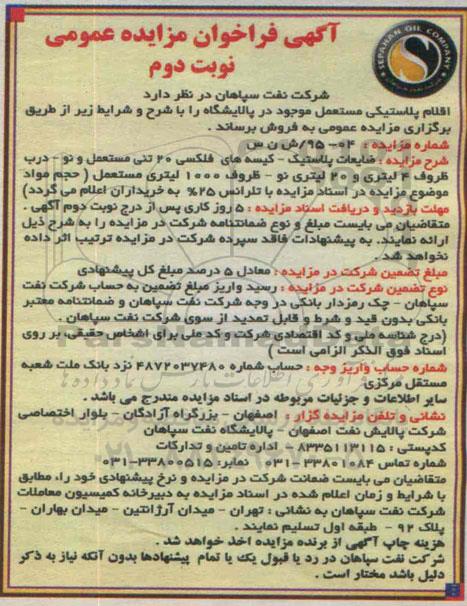 SEPAHAN OIL COMPANY
آگهی فراخوان مزایده عمومی
نوبت دوم
شرکت نفت سپاهان در نظر دارد
اقلام پلاستیکی مستعمل موجود در پالایشگاه را با شرح و شرایط زیر از طریق
برگزاری مزایده عمومی به فروش برساند .
شماره مزایده : ۰۲-۹۵/ش ن س
شرح مزایده : ضایعات پلاستیک - کیسه های فلکسی ۲۰ تنی مستعمل و نو - درب
ظروف ۴ لیتری و ۲۰ لیتری نو - ظروف ۱۰۰۰ لیتری مستعمل ( حجم مواد
موضوع مزایده در اسناد مزایده با تلرانس ۲۵% به خریداران اعلام می گردد)
مهلت بازدید و دریافت اسناد مزایده : ۵ روز کاری پس از درج نوبت دوم آگهی .
متقاضیان می بایست مبلغ و نوع ضمانتنامه شرکت در مزایده را به شرح ذیل
ارائه نمایند. به پیشنهادات فاقد سپرده شرکت در مزایده ترتیب اثر داده
نخواهد شد .
مبلغ تضمین شرکت در مزایده : معادل ۵ درصد مبلغ کل پیشنهادی
نوع تضمین شرکت در مزایده : رسید واریز مبلغ تضمین به حساب شرکت نفت
سپاهان - چک رمزدار بانکی در وجه شرکت نفت سپاهان و ضمانتنامه معتبر
بانکی بدون قید و شرط و قابل تمدید از سوی شرکت نفت سپاهان .
(درج شناسه ملی و کد اقتصادی شرکت و کد ملی برای اشخاص حقیقی بر روی
اسناد فوق الذکر الزامی است )
شماره حساب واریز وجه : حساب شماره ۴۸۷۲۰۳۷۴۸۰ نزد بانک ملت شعبه
مستقل مرکزی
سایر اطلاعات و جزئیات مربوطه در اسناد مزایده مندرج می باشد .
نشانی و تلفن مزایده گزار : اصفهان - بزرگراه آزادگان - بلوار اختصاصی
شرکت پالایش نفت اصفهان - پالایشگاه نفت سپاهان
کدپستی : ۸۳۳۵۱۱۳۱۱۵ - اداره تامین و تدارکات
شماره تماس ۳۳۸۰۱۰۸۴-۰۳۱ نمابر: ۳۳۸۰۰۵۱۵-۰۳۱
متقاضیان می بایست ضمانت شرکت در مزایده و نرخ پیشنهادی خود را، مطابق
با شرایط و زمان اعلام شده در اسناد مزایده به دبیرخانه کمیسیون معاملات
شرکت نفت سپاهان به نشانی : تهران - میدان آرژانتین - میدان بهاران -
پلاک ۹۲ - طبقه اول تسلیم نمایند .
هزینه چاپ آگهی از برنده مزایده اخذ خواهد شد .
شرکت نفت سپاهان در رد یا قبول یک یا تمام پیشنهادها بدون آنکه نیاز به ذکر
دلیل باشد مختار است .